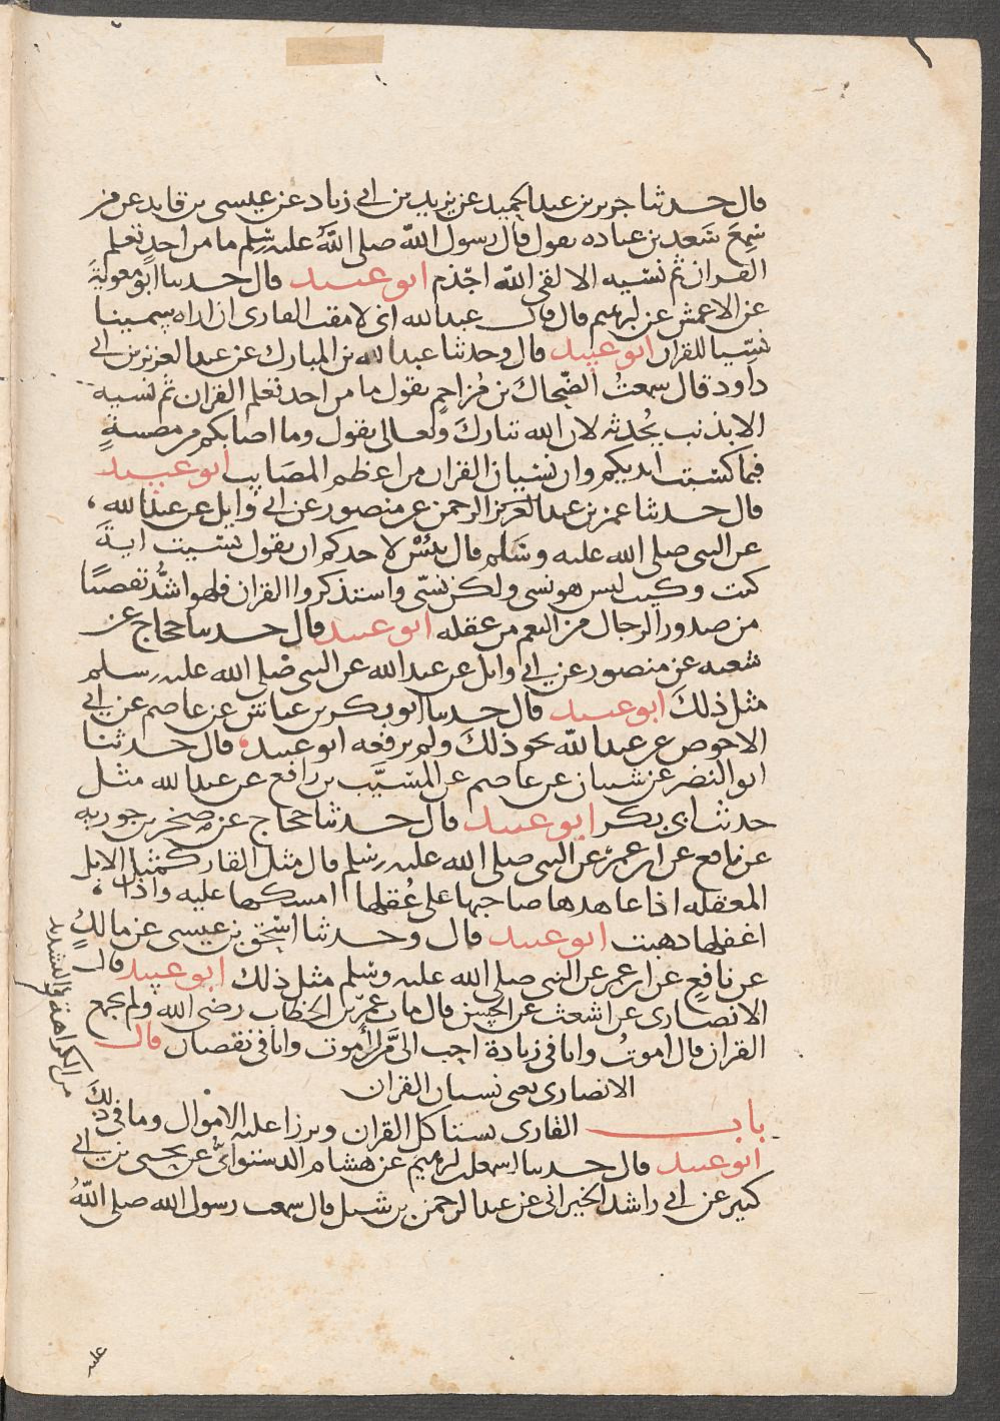 قال حدثنا جرير بن عبد الحميد عن يزيد بن ابي زياد عن عيسى بن قايد عن من
سَمِعَ سَعد بن عباده يقول قال رسول الله صلى اللهُ عليه وسلم ما من احدٍ تعلم
القران ثم نسيه الا لقي الله اجذم ابو عبيد قال حدثنا ابو معويةَ
عن الاعمش عن ابرهيم قال قال عبد الله اني لامقت القارى ان اراه سمينا
نَسِّيا للقران ابو عبيد قال وحدثنا عبد الله بن المبارك عن عبد العزيز بن ابي
داود قال سمعتُ الضّحاكَ بن مُزاحم يقول ما من احد تعلم القران ثم نسيه
الا بذنب يُحدثه لان الله تباركَ وتعالى يقول وما اصابكم من مصيبةٍ
فبما كسَبت ايديكم وان نسيان القران من اعظم المصَايب ابو عبيد
قال حدثنا عمر بن عبد الرحمن عن منصور عن ابي وايل عن عبد الله
عن النبي صلى الله عليه وسَلم قال بئسَ لاحدكم ان يقول نسَيت ايةَ
كيت وكيت ليس هو نسي ولكن نسّي واستذكروا القران فلهو اشدُّ تفصيًا
من صدور الرجال من النعم من عقله ابو عبيد قال حدثنا حجاج عن
شعبه عن منصور عن ابي وايل عن عبد الله عن النبي صلى الله عليه وسلم
مثل ذلكَ ابو عبيد قال حدثنا ابو بكر بن عياش عن عاصم عن ابي
الاحوص عن عبد الله نحو ذلكَ ولم يرفعه ابو عبيد قال حدثنا
ابو النضر عن شيبان عن عاصم عن المسَيَّب بن رافع عن عبد الله مثل
حديث ابي بكر ابو عبيد قال حدثنا حجاج عن صخر بن جويريه
عن نافع عن ابن عمر عن النبي صلى الله عليه وسلم قال مثل القران كمثل الابل
المعقله اذا عاهدها صاحبها على عُقلها امسكها عليه واذا
اغفلها ذهبت ابو عبيد قال وحدثنا اسحق بن عيسى عن مالكٍ
عن نافعٍ عن ابن عمر عن النبي صلى الله عليه وسلم مثل ذلك ابو عبيد قال
الانصارى عن اشعث عن الحسن قال مات عمر بن الخطاب رضى الله ولم يجمع
القران قال اموتُ وانا في زيادة احب الىَّ من ان اموت وانا في نقصان قال
الانصارى يعني نسيان القران
باب القارى يستاكل القران ويرزا عليه الاموال وما في ذلكَ
من الكراهة والتشديد
ابو عبيد قال حدثنا اسمعيل بن ابرهيم عن هشام الدستوائي عن يحيى بن ابي
كثير عن ابي راشد الحبراني عن عبد الرحمن بن شبل قال سمعت رسول الله صلى اللهُ
عليه